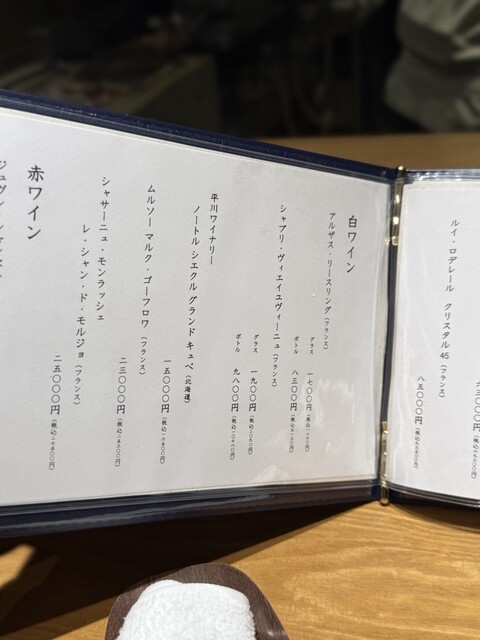 ルイ・ロデレール クリスタル 45(フランス)
八五〇〇〇円(税込九三五〇〇円)
白ワイン
アルザス・リースリング(フランス)
グラス 一七〇〇円(税込一八七〇円)
ボトル 八三〇〇円(税込九一三〇円)
シャブリ・ヴィエイユヴィーニュ(フランス)
グラス 一九〇〇円(税込二〇九〇円)
ボトル 九八〇〇円(税込一〇七八〇円)
平川ワイナリー
ノートル シエクル グランド キュベ(北海道)
一五〇〇〇円(税込一六五〇〇円)
ムルソー マルク・ゴーフロワ(フランス)
二三〇〇〇円(税込二五三〇〇円)
シャサーニュ・モンラッシェ
レ・シャン・ド・モルジョ(フランス)
二五〇〇〇円(税込二七五〇〇円)
赤ワイン